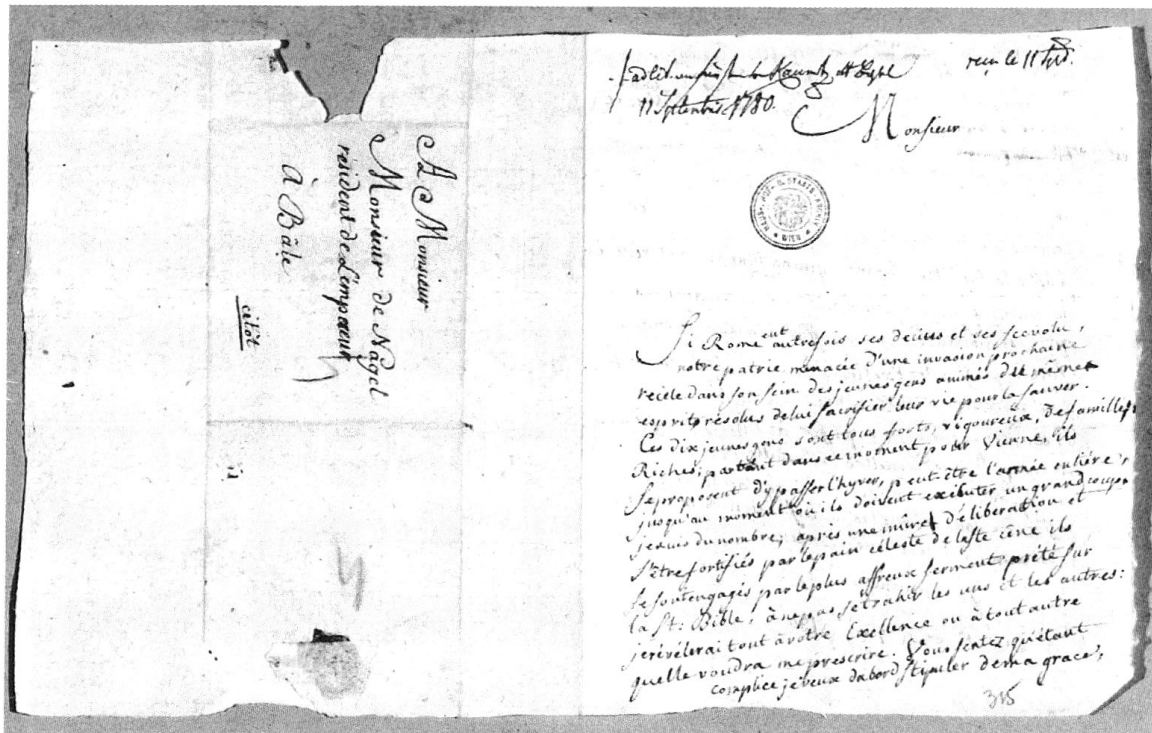 A Monsieur
Monsieur de Nagel
résident de L'empereur
à Bâle
citôt
reçu le 11
11 Septembre 1780.
Monsieur
Si Rome eut autrefois ses decius et ses scevola,
notre patrie menacée d'une invasion prochaine
recèle dans son sein des jeunes gens animés du même
esprit résolus de lui sacrifier leur vie pour la sauver.
Ces dix jeunes gens sont tous forts, vigoureux, de familles
Riches, partant dans ce moment pour Vienne, ils
se proposent d'y passer l'hyver, peut-être l'année entière,
jusqu'au moment où ils doivent exécuter un grand coup,
je suis du nombre; après une mûre délibération et
s'être fortifiés par le pain céleste de la Ste cène ils
se sont engagés par le plus affreux serment prêté sur
la St: Bible, à ne pas se trahir les uns et les autres:
je révélerai tout à votre Excellence ou à tout autre
quelle voudra me prescrire. Vous sentez qu'étant
complice je veux dabord stipuler de ma grace,
315